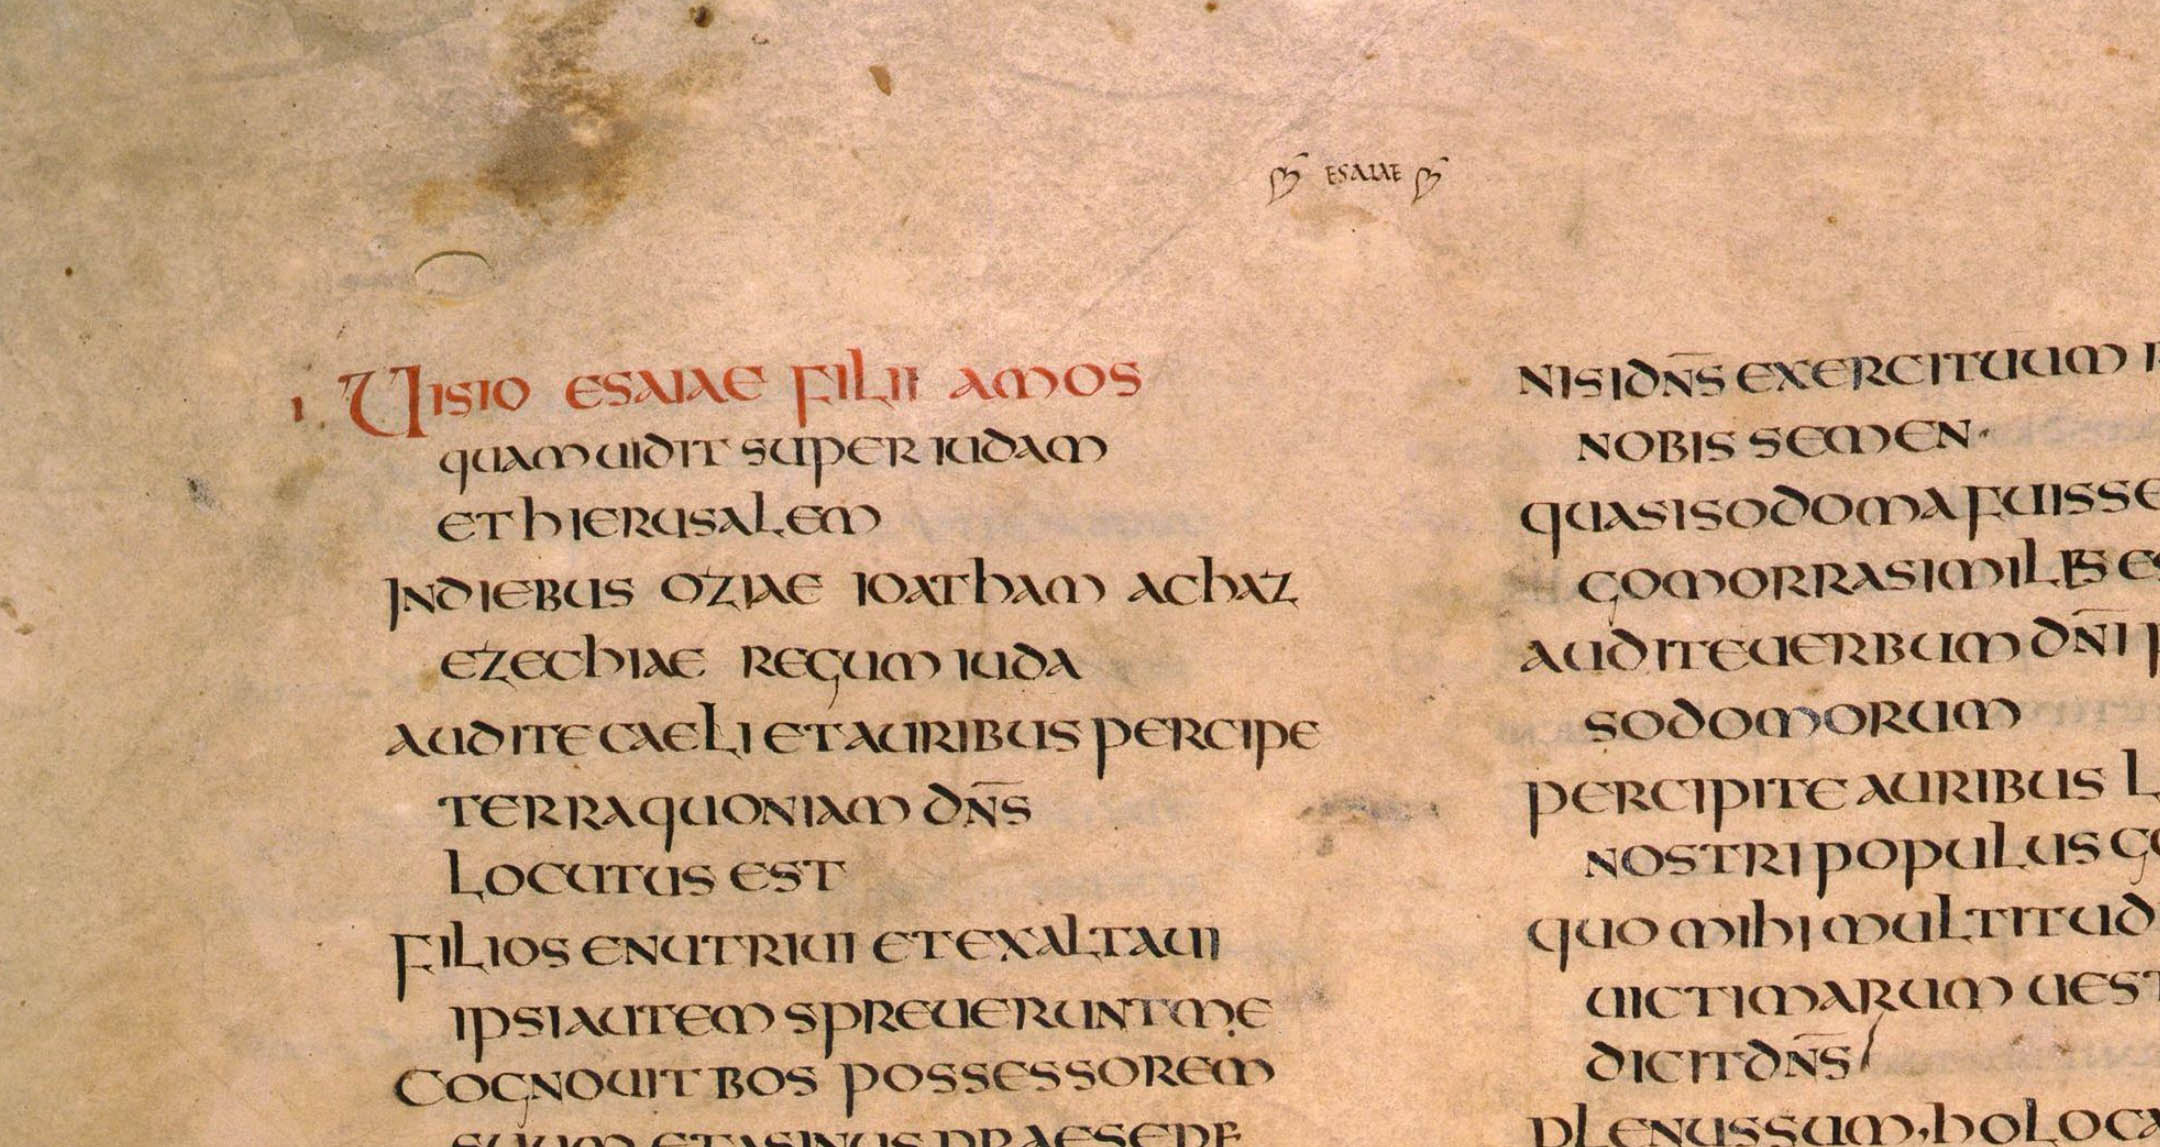 ESAIAE
I. UISIO ESAIAE FILII AMOS
QUAM UIDIT SUPER IUDAM
ET HIERUSALEM
IN DIEBUS OZIAE IOATHAM ACHAZ
EZECHIAE REGUM IUDA
AUDITE CAELI ET AURIBUS PERCIPE
TERRA QUONIAM DN̅S
LOCUTUS EST
FILIOS ENUTRIUI ET EXALTAUI
IPSI AUTEM SPREUERUNT ME
COGNOUIT BOS POSSESSOREM
SUUM ET ASINUS PRAESEPE
NISI DN̅S EXERCITUUM
NOBIS SEMEN·
QUASI SODOMA FUISSE
GOMORRA SIMILES ES
AUDITE UERBUM DN̅I P
SODOMORUM
PERCIPITE AURIBUS L
NOSTRI POPULUS GO
QUO MIHI MULTITUD
UICTIMARUM UEST
DICIT DN̅S
PLENUS SUM, HOLOCA